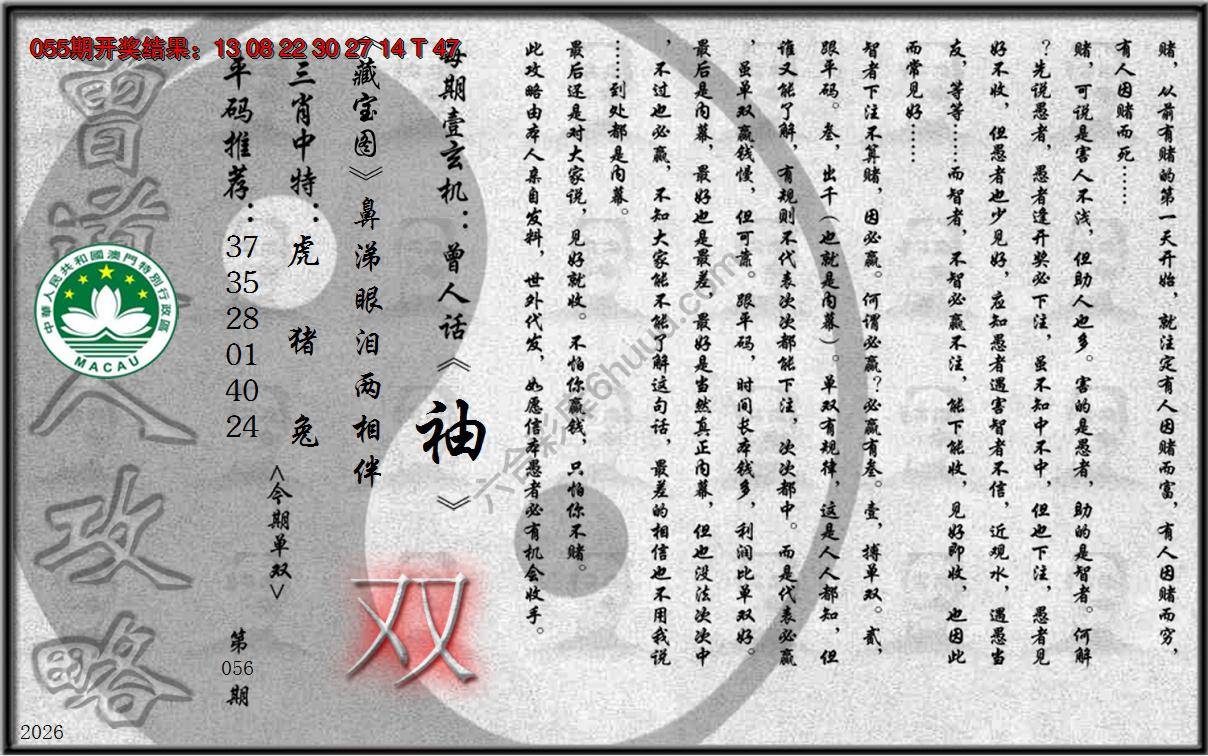 055期开奖结果：13 08 22 30 27 14 T 47
赌，从前有赌的第一天开始，就注定有人因赌而富，有人因赌而穷，
有人因赌而死……
赌，可说是害人不浅，但助人也多。害的是愚者，助的是智者。何解
？先说愚者，愚者逢开奖必下注，虽不知中不中，但也下注，愚者见
好不收，但愚者也少见好，应知愚者遇害智者不信，近观水，遇愚当
友，等等……而智者，不智必赢不注，能下能收，见好即收，也因此
而常见好……
智者下注不算赌，因必赢。何谓必赢？必赢有叁。壹，搏单双。贰，
跟平码。叁，出千（也就是内幕）。单双有规律，这是人人都知，但
谁又能了解，有规则不代表次次都能下注，次次都中。而是代表必赢
，虽单双赢钱慢，但可靠。跟平码，时间长本钱多，利润比单双好。
最后是内幕，最好也是最差，最好是当然真正内幕，但也没法次次中
，不过也必赢，不知大家能不能了解这句话，最差的相信也不用我说
……到处都是内幕。
最后还是对大家说，见好就收。不怕你赢钱，只怕你不赌。
此攻略由本人亲自发料，世外代发，如愿信本愚者必有机会收手。
每期壹玄机：曾人话《袖》
《藏宝图》鼻涕眼泪两相伴
三肖中特：虎 猪 兔
平码推荐：
37
35
28
01
40
24
<今期单双>
双
第
056
期
曾道人攻略
中華人民共和國澳門特別行政區
MACAU
六合彩库6huuu.com
2026